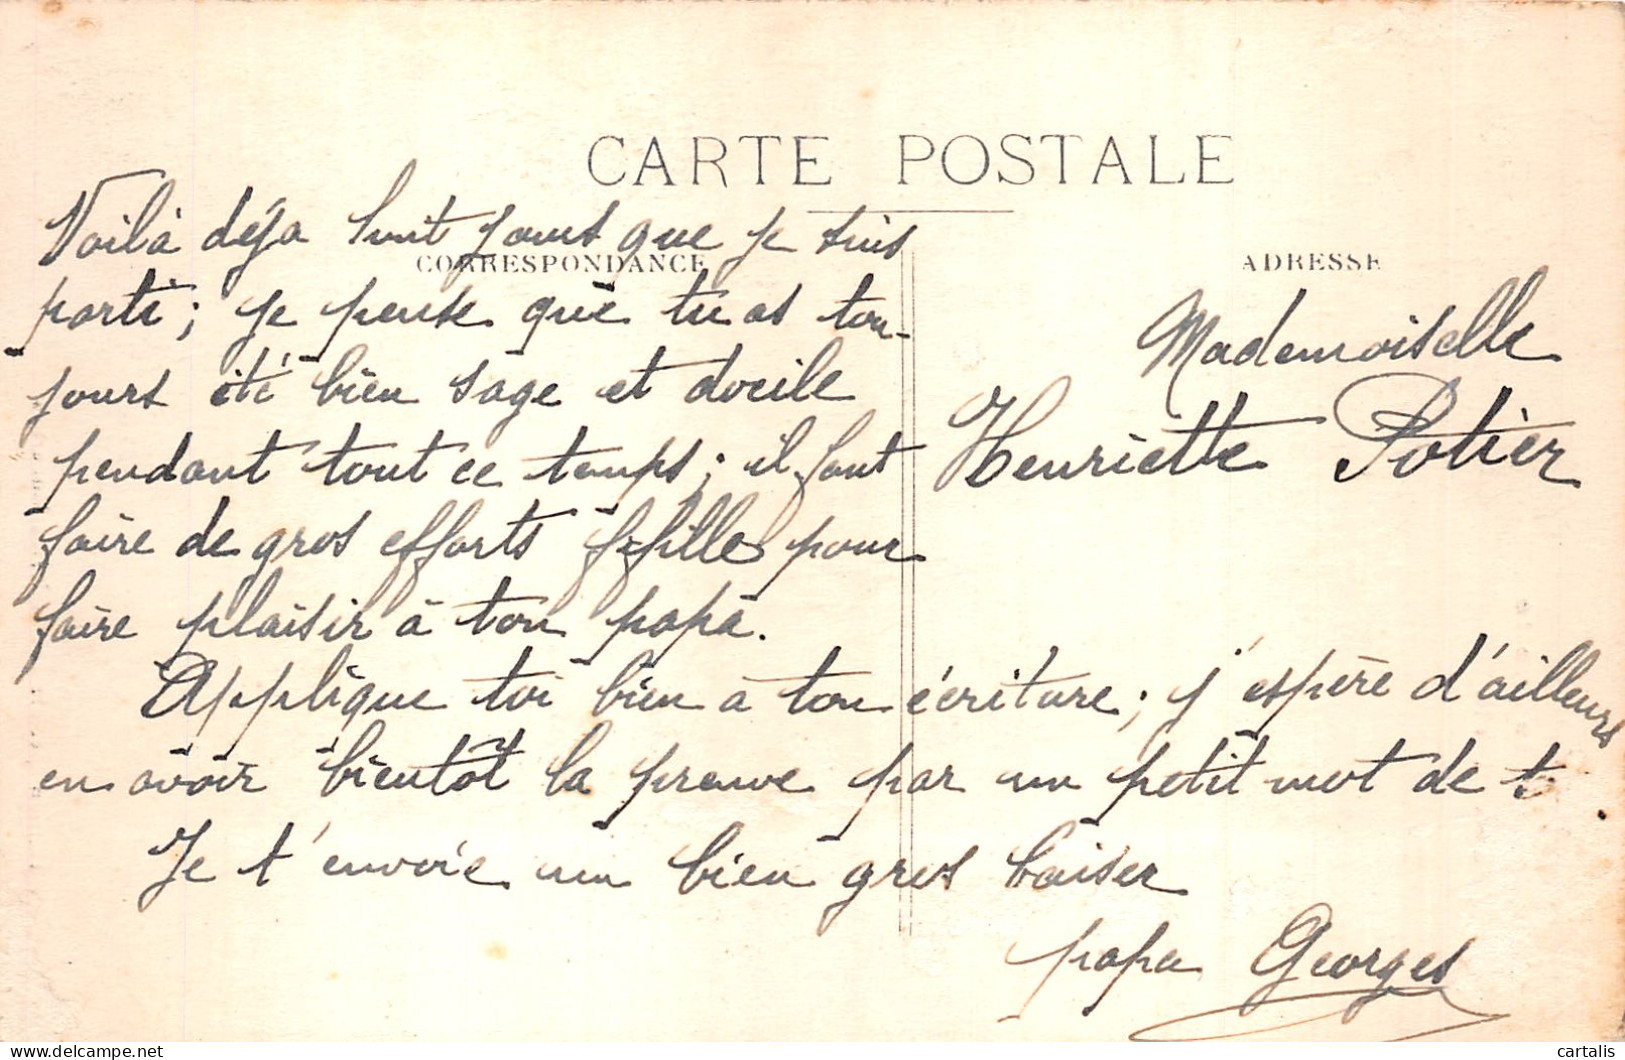 CARTE POSTALE
CORRESPONDANCE
ADRESSE
Voilà déja huit jours que je suis
parti; je pense que tu as tou-
jours été bien sage et docile
pendant tout ce temps; il faut
faire de gros efforts fifille pour
faire plaisir à ton papa.
Applique toi bien à ton écriture; j'espère d'ailleurs
en avoir bientôt la preuve par un petit mot de
Je t'envoie un bien gros baiser
papa Georges
Mademoiselle
Henriette Potier
cartalis